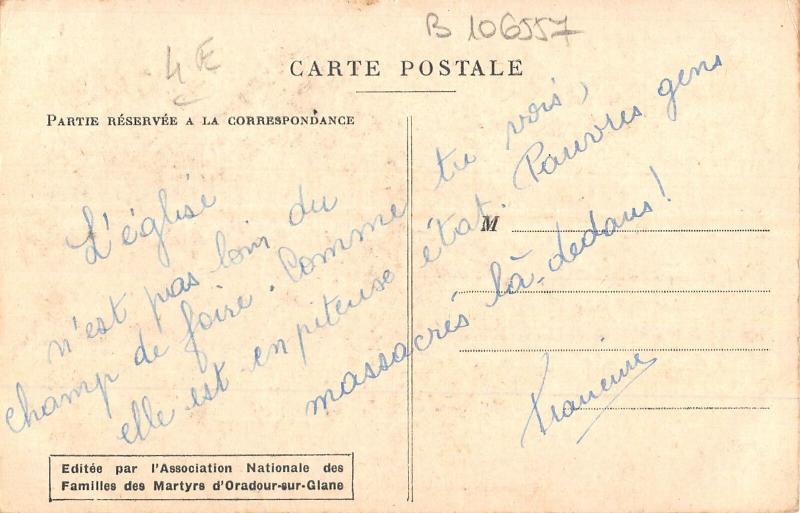 B 106557
4 E
CARTE POSTALE
PARTIE RÉSERVÉE A LA CORRESPONDANCE
M
L'église
n'est pas loin du
champ de foire. Comme tu vois,
elle est en piteuse état. Pauvres gens
massacrés là-dedans!
Francine
Editée par l'Association Nationale des
Familles des Martyrs d'Oradour-sur-Glane